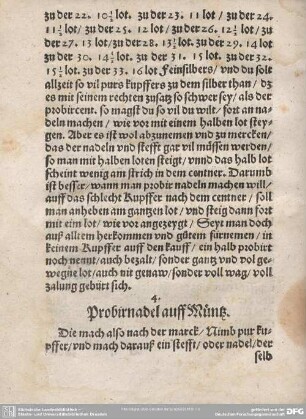 zu der 22. 10½ lot. zu der 23. 11 lot / zu der 24.
11½ lot / zu der 25. 12 lot / zu der 26. 12½ lot / zu
der 27. 13 lot / zu der 28. 13½ lot. zu der 29. 14 lot
zu der 30. 14½ lot. zu der 31. 15 lot. zu der 32.
15½ lot. zu der 33. 16 lot Feinsilbers / vnd du solt
allzeit so vil purs kupffers zu dem silber than / dz
es mit seinem rechten zusatz so schwer sey / als der
probircent. so magst du so vil du wilt / fort an na-
deln machen / wie vor mit einem halben lot stey-
gen. Aber es ist wol abzunemen vnd zu mercken /
das der nadeln vnd stefft gar vil müssen werden /
so man mit halben loten steigt / vnnd das halb lot
scheint wenig am strich in dem centner. Darumb
ist besser / wann man probir nadeln machen will /
auff das schlecht Kupffer nach dem centner / soll
man anheben am gantzen lot / vnd steig dann fort
mit eim lot / wie vor angezeygt / Seyt man doch
auß alltem herkommen vnd gůtem fürnemen / in
keinem Kupffer auff den kauff / ein halb probirt
noch nennt / auch bezalt / sonder gantz vnd vol ge-
wegne lot / auch nit genaw / sonder voll wag / voll
zalung gebürt sich.
4.
Probirnadel auff Müntz.
Die mach also nach der marck / Nimb pur ku-
pffer / vnd mach darauß ein stefft / oder nadel / der
selb